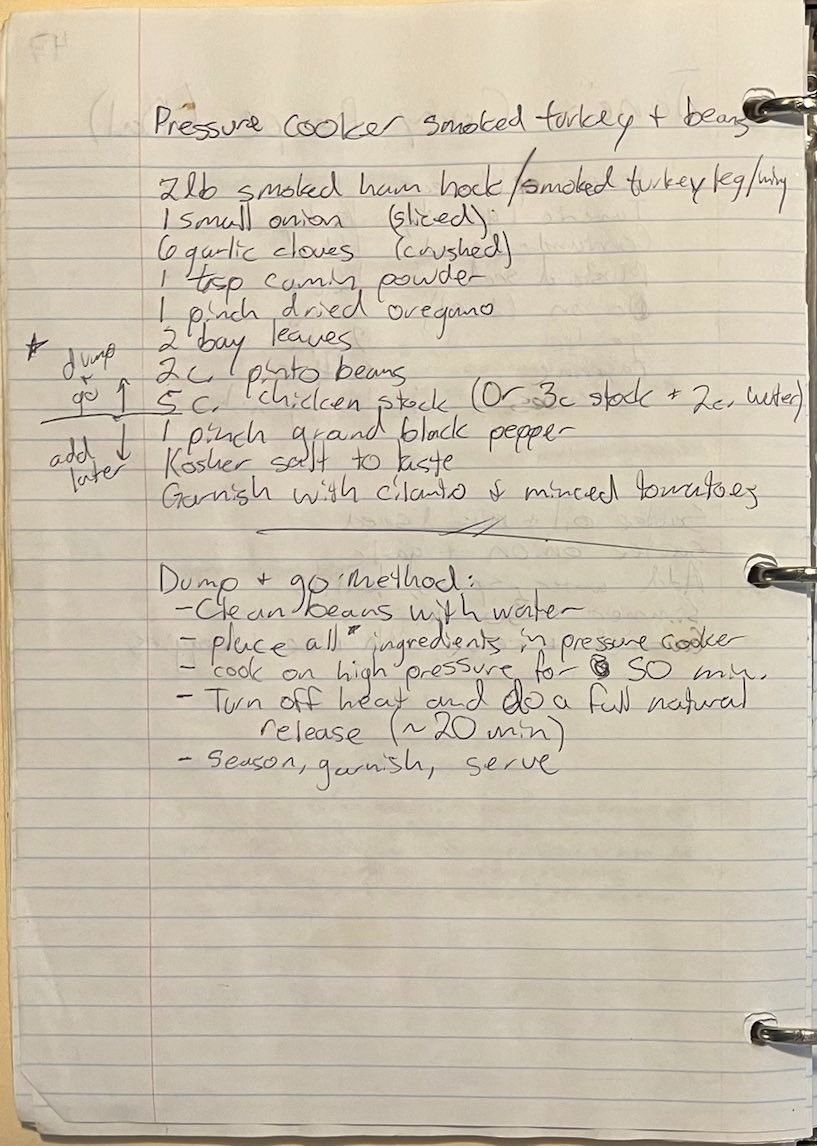 Pressure cooker smoked turkey + beans
2lb smoked ham hock/smoked turkey leg/wing
1 small onion (sliced)
6 garlic cloves (crushed)
1 tsp cumin powder
1 pinch dried oregano
2 bay leaves
* dump + go ↑
2 c. pinto beans
5 c. chicken stock (Or 3c stock + 2c. water)
add later ↓
1 pinch ground black pepper
Kosher salt to taste
Garnish with cilanto & minced tomatoes
Dump + go method:
- Clean beans with water
- place all * ingredients in pressure cooker
- cook on high pressure for 50 min.
- Turn off heat and do a full natural
release (~20 min)
- Season, garnish, serve